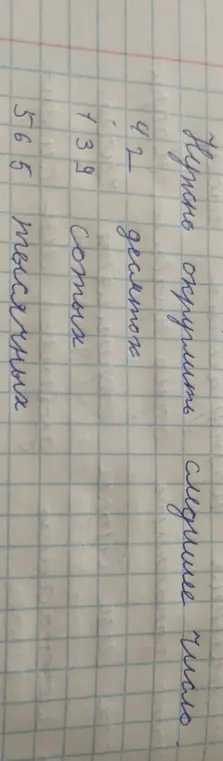 Нужно округлить следущее число
42 десяток
139 сотых
565 тысячных